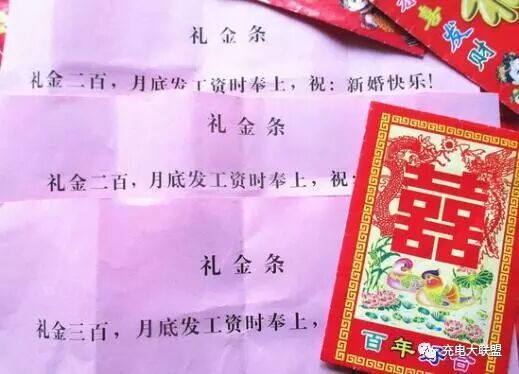 礼金条
礼金二百，月底发工资时奉上，祝：新婚快乐！
礼金条
礼金二百，月底发工资时奉上，祝：
礼金条
礼金三百，月底发工资时奉上，
喜发财
囍
百年好合
充电大联盟